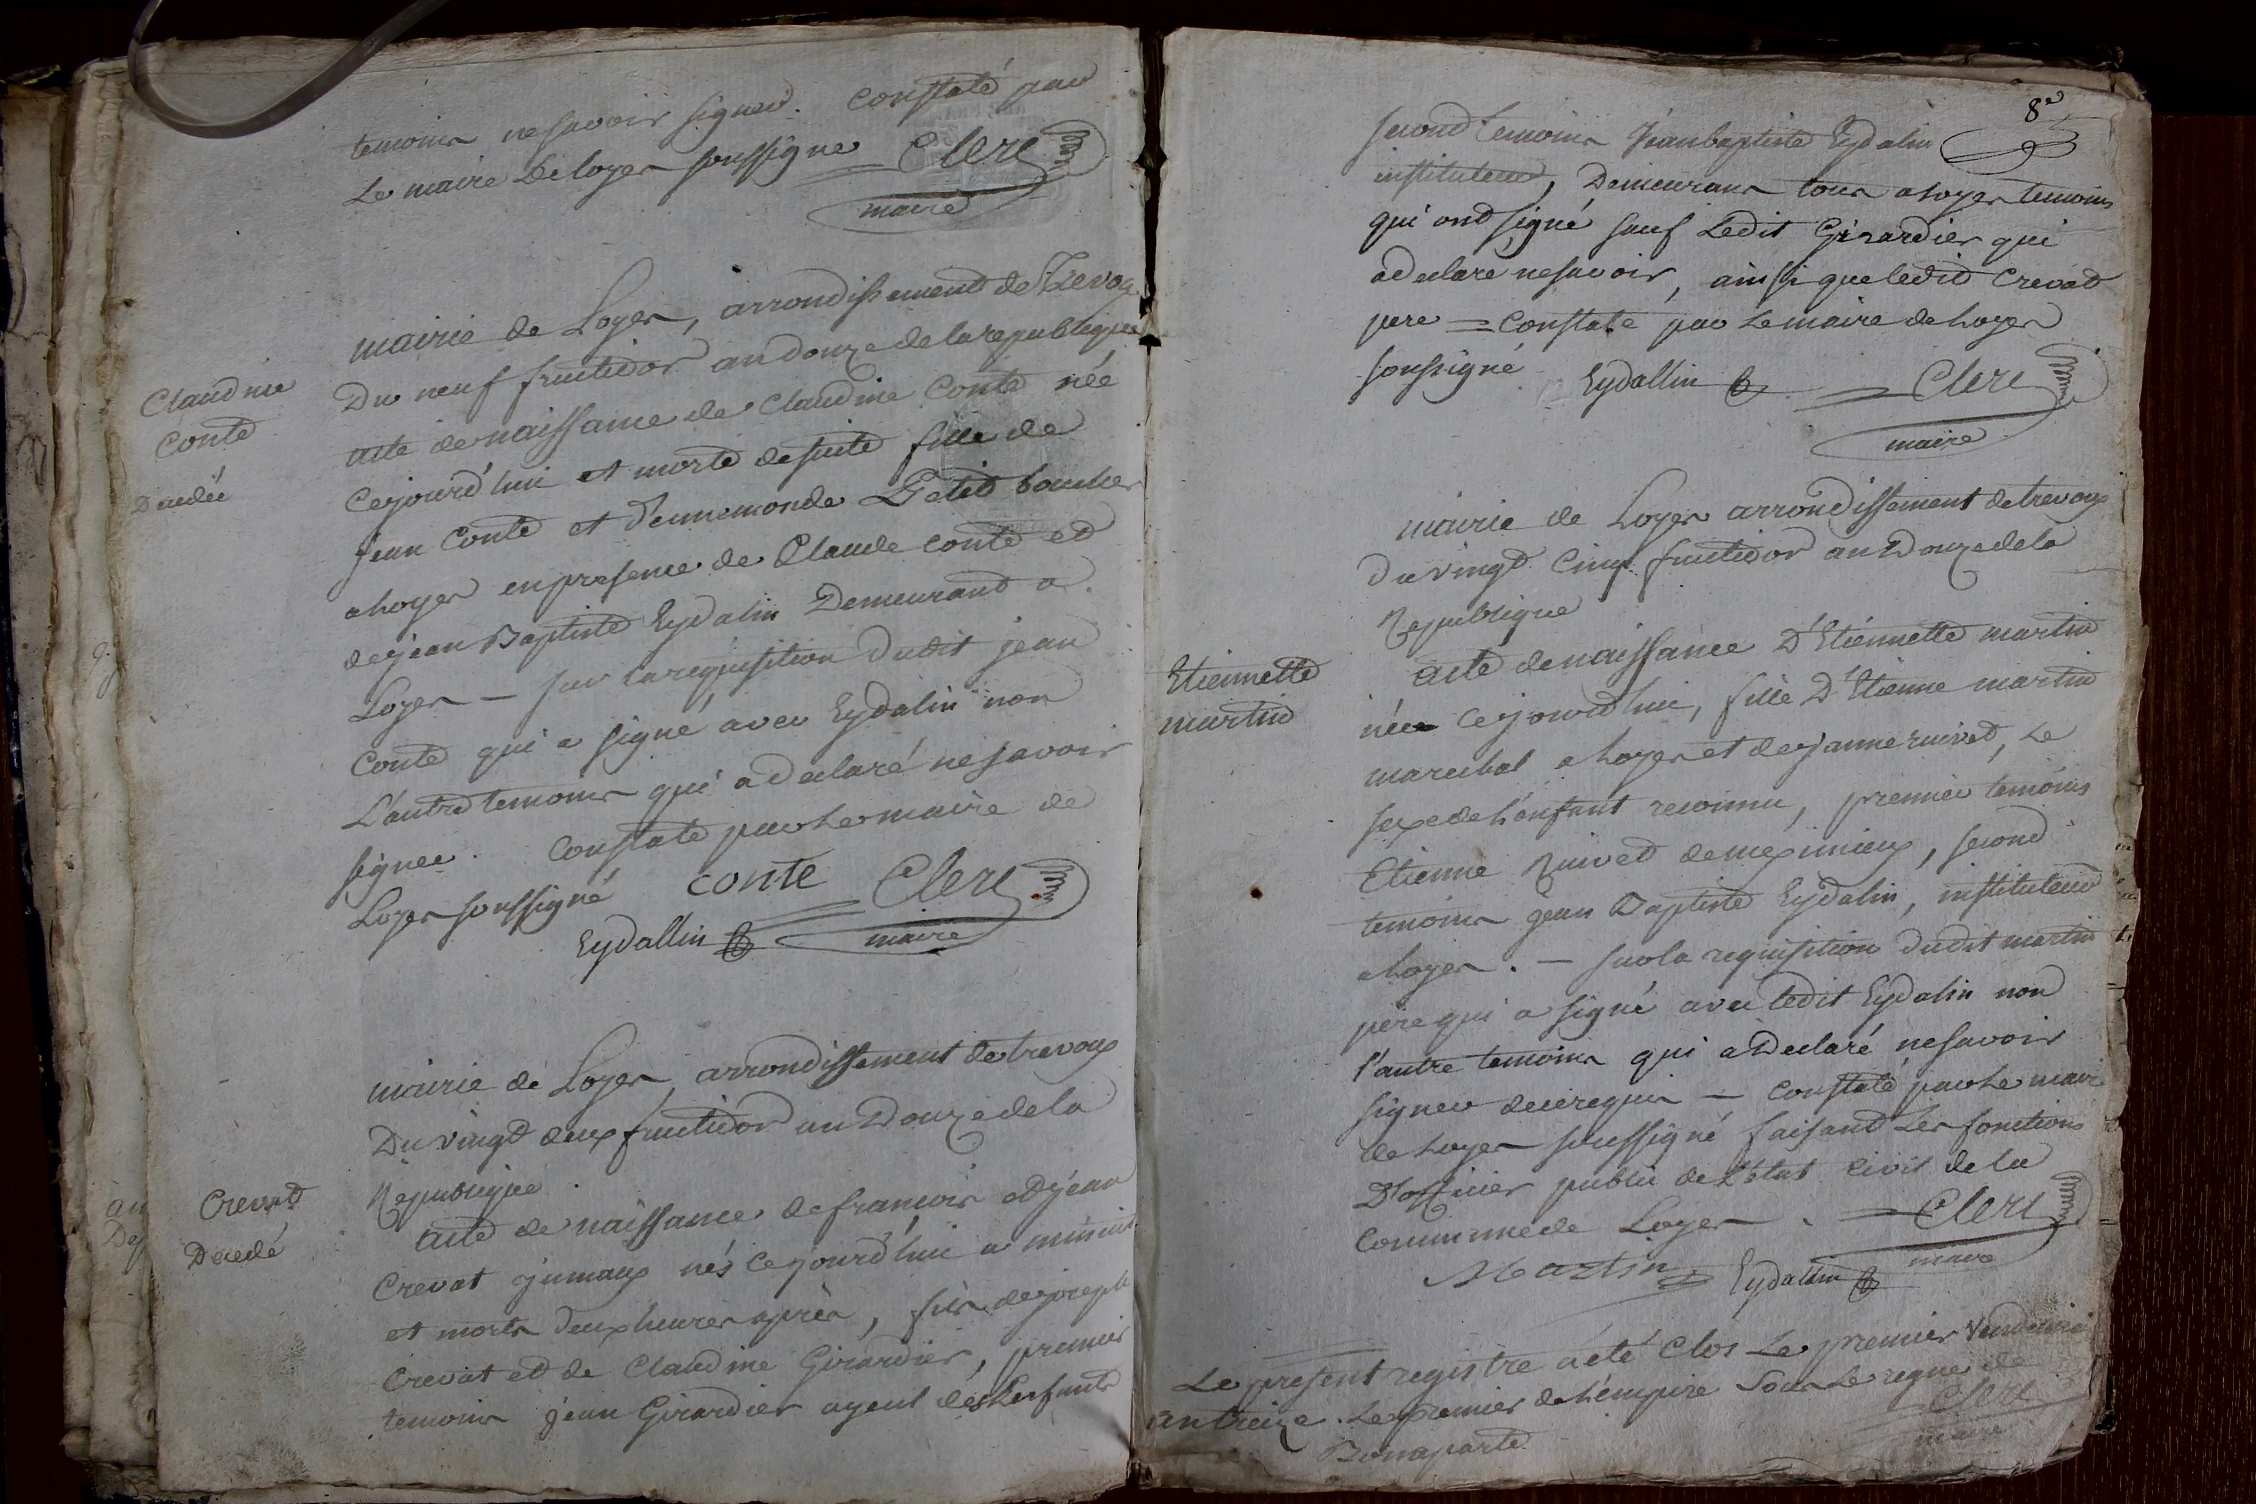 temoins ne savoir signer. Constaté par
Le maire De loyes soussigné Clerc
maire
mairie de Loyes, arrondissement de Trevoux
Du neuf fructidor an douze de la republique
Claudine
Conte
Decedée
acte de naissance de Claudine Conte née
Cejourd'hui et morte de suite fille de
jean Conte et d'ennemonde Petit boucher
a Loyes en presence de Claude Conte et
de jean Baptiste Eydalin Demeurant a
Loyes — sur la requisition dudit jean
Conte qui a signé avec Eydalin non
L'autre temoins qui a declaré ne savoir
signer. Constaté par Le maire de
Loyes soussigné conte Clerc
Eydallin maire
mairie de Loyes, arrondissement de trevoux
Du vingt deux fructidor an Douze de la
Republique.
Crevat
Decedé
acte de naissance de francois et jean
Crevat jumaux nés Cejourd'hui a minuit
et morts deux heures après, fils de joseph
Crevat et de Claudine Girardier, premier
temoins jean Girardier ayeul des Enfants
8e
second temoins Jean baptiste Eydalin
instituteur, Demeurans tous a Loyes temoins
qui ont signé sauf Ledit Girardier qui
a declaré ne savoir, ainsi que ledit Crevat
pere = Constaté par Le maire de Loyes
soussigné Eydallin Clerc
maire
mairie de Loyes arrondissement de trevoux
Du vingt Cinq fructidor an Douze de la
Republique
Etiennette
martin
acte de naissance D'Etiennette martin
née Cejourd'hui, fille D'Etienne martin
marechal a Loyes et de janne ruivet, Le
sexe de L'enfant reconnu, premier temoins
Etienne Ruivet de meximieux, second
temoins jean Baptiste Eydalin, instituteur
a Loyes. — sur la requisition dudit martin
père qui a signé avec ledit Eydalin non
l'autre temoins qui a Declaré ne savoir
signer de ce requis — Constaté par Le maire
de Loyes soussigné faisant Les fonctions
D'officier public de L'état Civil de la
Commune de Loyes. Clerc
Martin Eydallin maire
Le present registre a été Clos Le premier Vendemiaire
an treize. Le premier de L'empire Sous Le regne de
Bonaparte Clerc
maire